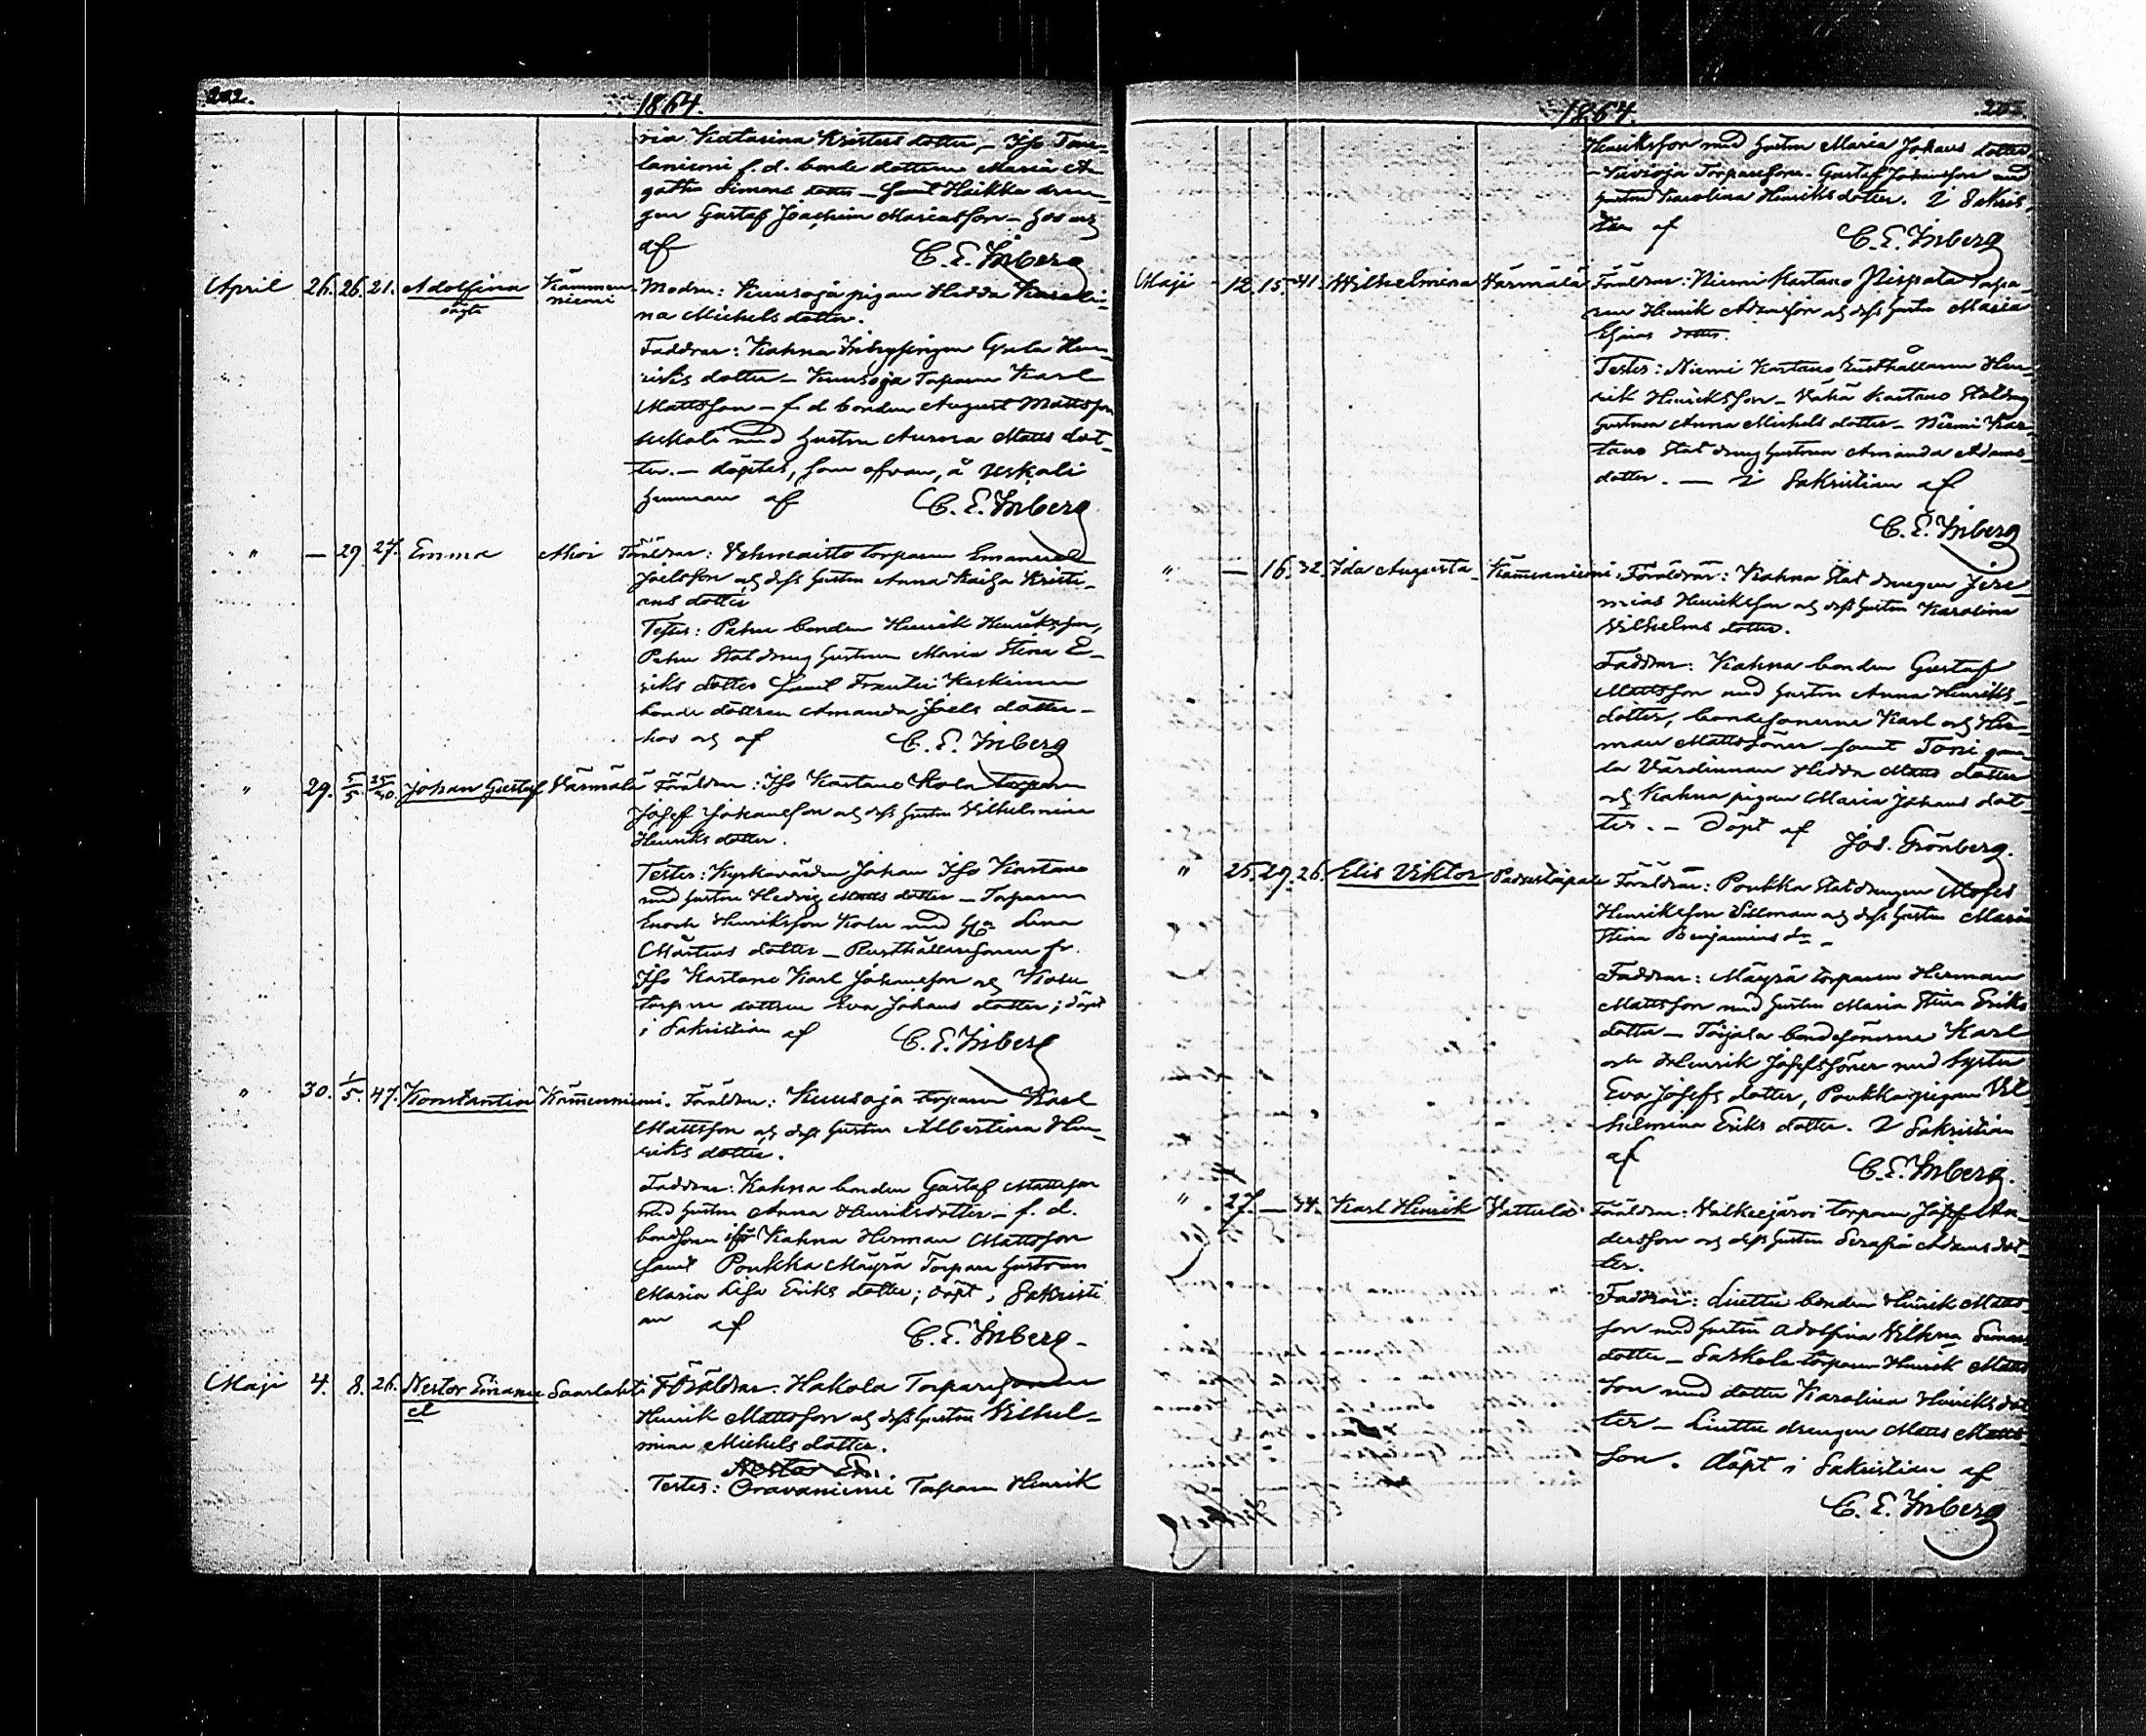 202.
1864.
ria Katarina Kristers dotter, - Iso Tau-
laniemi f. d. bonde dottern Maria A-
gatha Simons dotter - samt Heikka dren-
gen Gustaf Joachim Mariasson - hos og
af C. E. Inberg
April 26. 26. 21. Adolfina Kämmen- Modren: Kuusoja pigan Hedda Karoli-
oägta niemi na Michels dotter.
Faddrar: Kahna Inhysingen Greta Hen-
riks dotter - Kuusoja Torparen Karl
Mattsson - f. d. bonden August Mattsson
Uskali med hustru Aurora Matts dot-
ter. - döptes, som ofvan, å Uskali
hemman af C. E. Inberg
" — 29. 27. Emma Moi Föräldrar: Vehmaisto torparen Emanuel
Joelsson og dess hustru Anna Kaisa Kristi-
ans dotter
Testes: Petru bonden Henrik Henriksson,
Petru Statdreng hustrun Maria Stina E-
riks dotter samt Frantsi Keskinen
bonde döttren Amanda Joels dotter -
hos og af C. E. Inberg
" 29. 5/5. 25/40. Johan Gustaf Värmälä Föräldrar: Iso Kartano Kolu torparen
Josef Johansson og dess hustru Vilhelmina
Henriks dotter.
Testes: Kyrkovärden Johan Iso Kartano
med hustru Hedvig Matts dotter - Torparen
Enoch Henriksson Kolu med Hu Lena
Mårtens dotter - Rusthållaresonen fr.
Iso Kartano Karl Johansson og Kolu
torpare dottren Eva Johans dotter; döpt
i Sakristian af C. E. Inberg
" 30. 1/5. 47. Konstantin Kämmenniemi. Föräldrar: Kuusoja torparen Karl
Mattsson og dess hustru Albertina Hen-
riks dotter.
Faddrar: Kahna bonden Gustaf Mattsson
med hustru Anna Henriksdotter - f. d.
bondsonen ifr Kahna Herman Mattsson
samt Poukka Mäyrä Torpare hustrun
Maria Lisa Eriks dotter; döpt i Sakristi
an af C. E. Inberg -
Maji 4. 8. 26. Nestor Emanu Saarlahti Föräldrar: Hakola Torparesonen
el Henrik Mattsson og dess hustru Vilhel-
mina Michels dotter.
Nestor Em.
Testes: Oravaniemi Torparen Henrik
1864.
203.
Henriksson med hustru Maria Johans dotter
- Viivioja Torparesonen Gustaf Johansson med
hustru Karolina Henriks dotter. I Sakris-
tian af C. E. Inberg
Maji 12. 15. 41. Wilhelmina Värmälä Föräldrar: Niemi Kartano Pispala Torpa-
ren Henrik Adamsson og dess hustru Maria
Esaias dotter.
Testes: Niemi Kartano Rusthållaren Hen-
rik Henriksson - Vähä Kartano Statdreng
hustrun Anna Michels dotter - Niemi Kar-
tano Stat dreng hustrun Amanda Adams-
dotter. — I Sakristian af
C. E. Inberg
" — 16. 32. Ida Augusta Kämmenniemi. Föräldrar: Kahna Stat drengen Jere-
mias Henriksson og dess hustru Karolina
Vilhelms dotter.
Faddrar: Kahna bonden Gustaf
Mattsson med hustru Anna Henriks-
dotter, bondesönerne Karl og Her-
man Mattssöner samt Toni gam-
la Värdinnan Hedda Matts dotter
og Kahna pigan Maria Johans dot-
ter. - Döpt af Jos. Grönberg.
" 25. 29. 26. Elis Viktor Paduståpale Föräldrar: Poukka Statdrengen Moses
Henriksson Villman og dess hustru Maria
Stina Benjamins dr.
Faddrar: Mäyrä torparen Herman
Mattsson med hustru Maria Stina Eriks
dotter - Tarjala bondesönerne Karl
och Henrik Josefssöner med Syster
Eva Josefs dotter, Poukka pigan Vil-
helmina Eriks dotter. I Sakristian
af C. E. Inberg.
" 27. — 34. Karl Henrik Vattula Föräldrar: Valkeejärvi torparen Josef An-
dersson og dess hustru Serafia Adams dot-
ter.
Faddrar: Liuttu bonden Henrik Matts-
son med hustru Adolfina Vilhna Simons
dotter - Saskola torparen Henrik Matts
son med dotter Karolina Henriks dot
ter - Liuttu drengen Matts Matts-
son. döpt i Sakristian af
C. E. Inberg